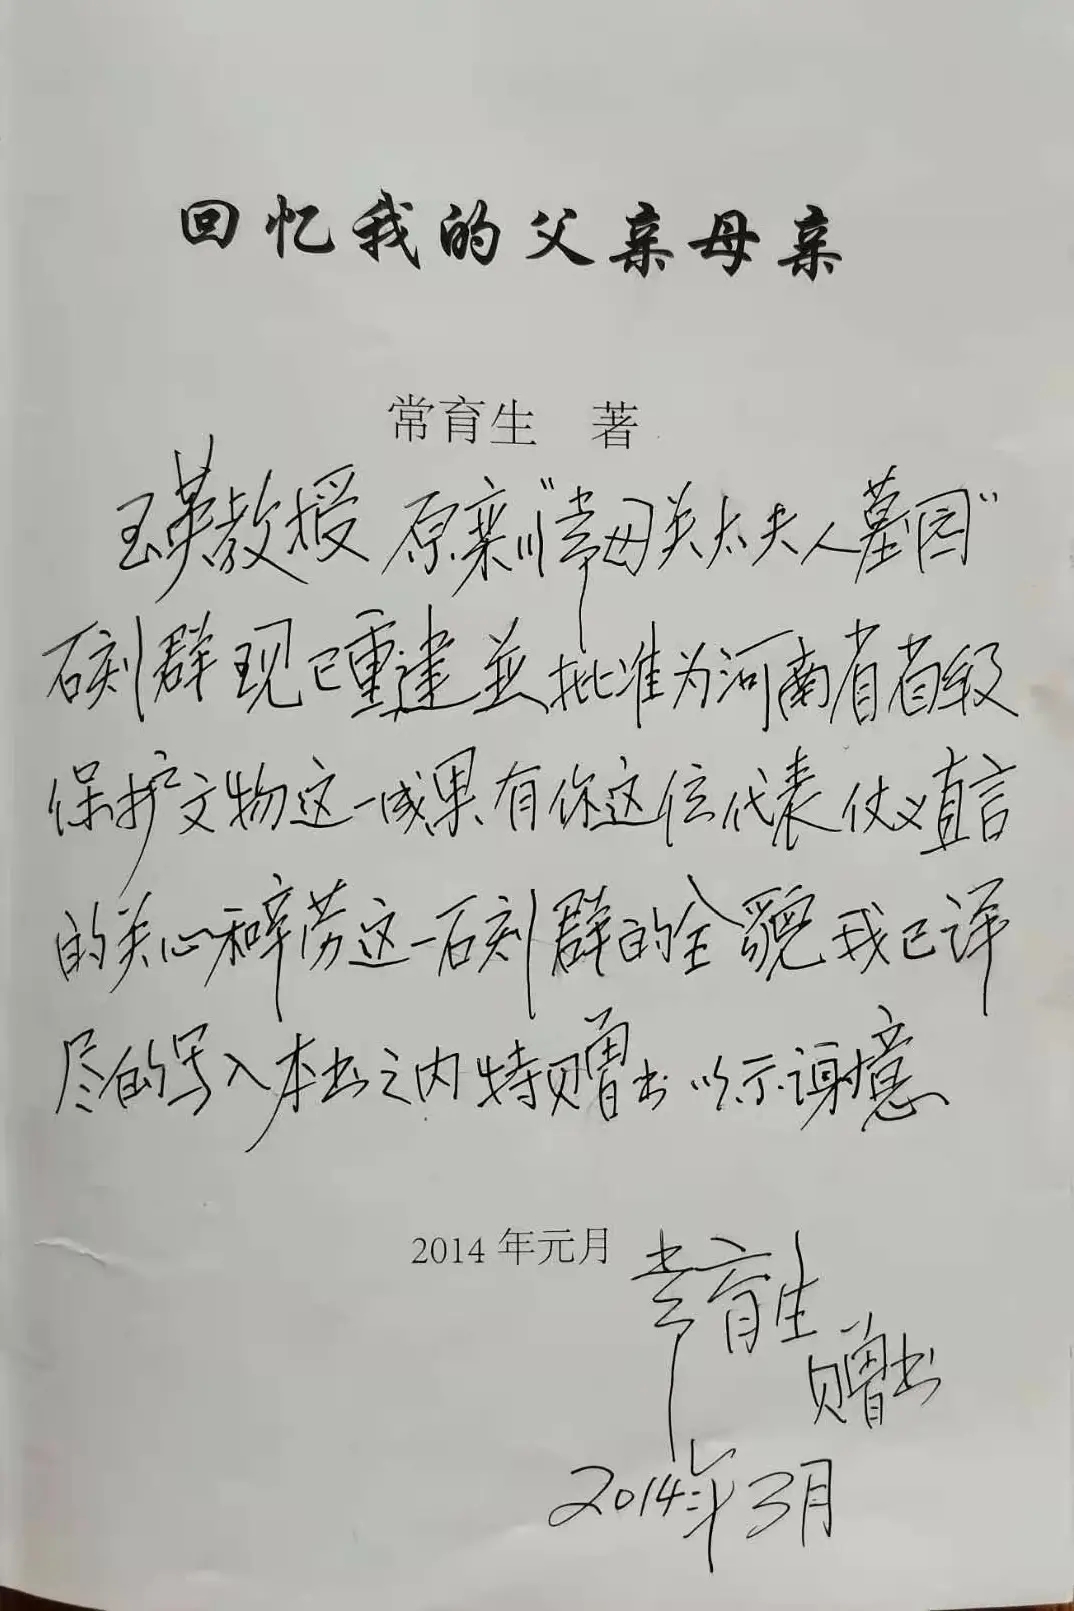 回忆我的父亲母亲
常育生 著
玉英教授 原栾川“常母关太夫人墓园”
石刻群现已重建並批准为河南省省级
保护文物这一成果有你这位代表仗义直言
的关心和辛劳这一石刻群的全貌我已详
尽的写入本书之内特赠书以示谢意
2014年元月
常育生
赠书
2014年3月